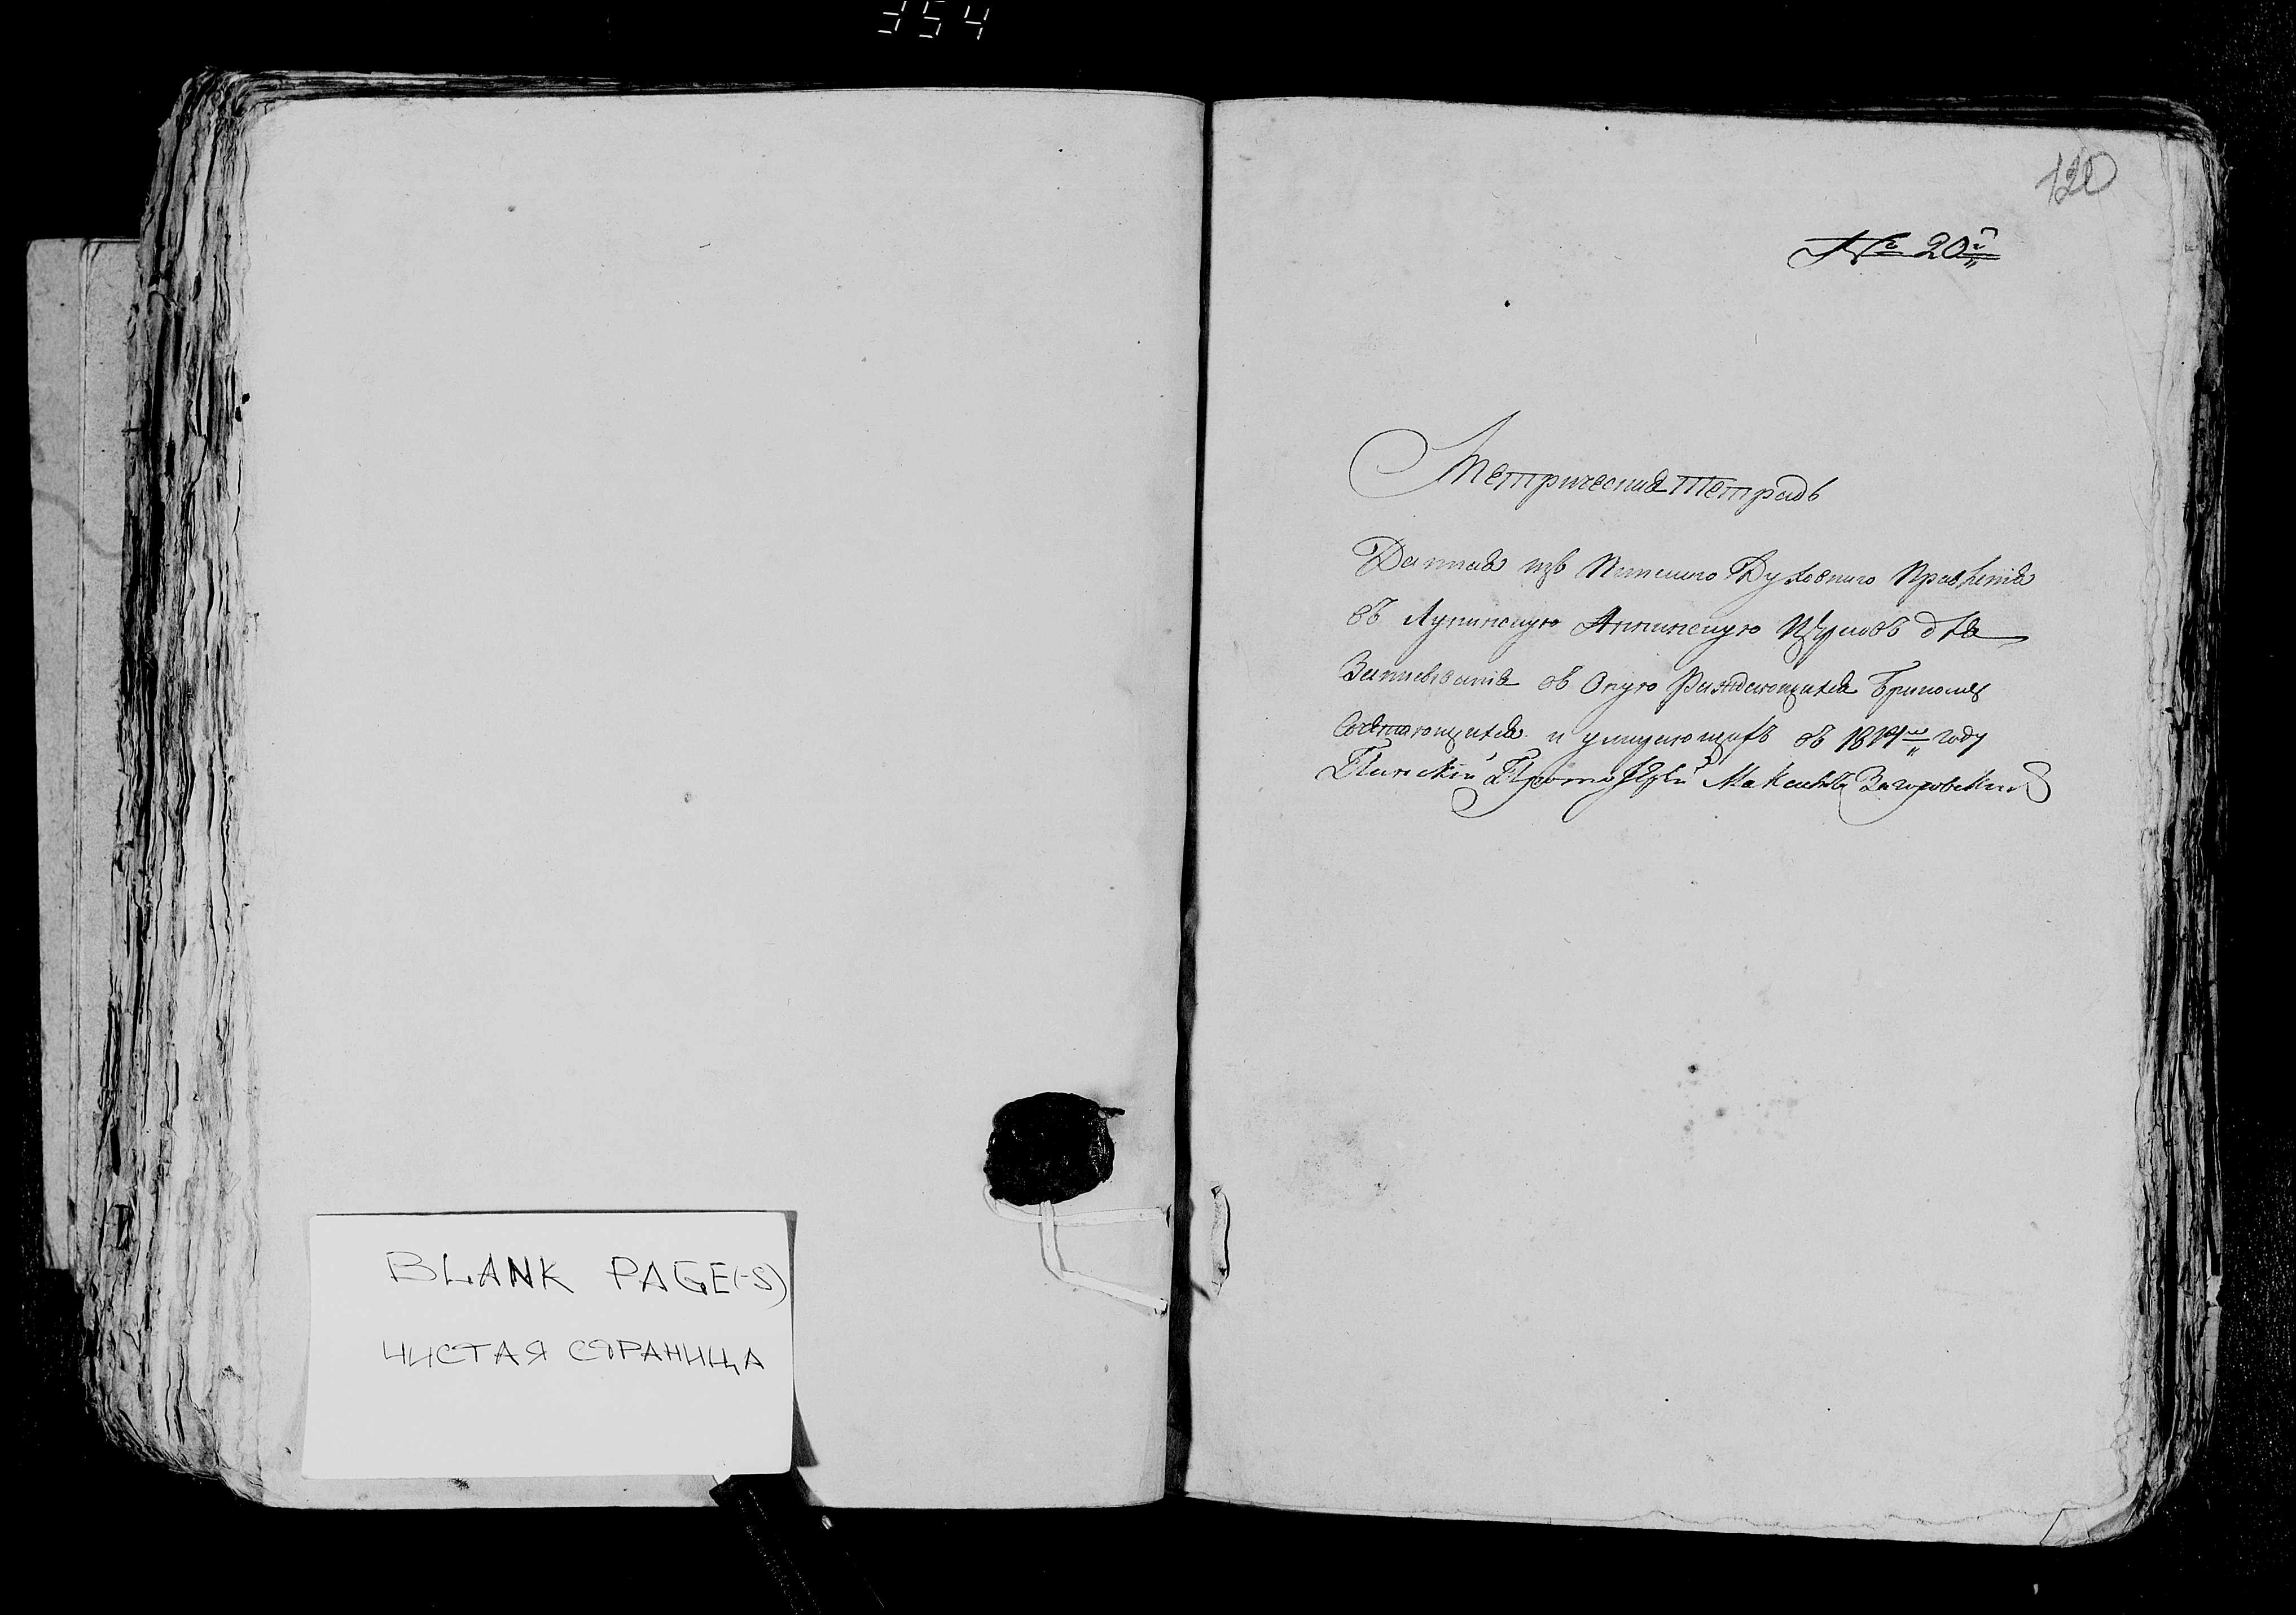 354
120
№ 20й
Метрическая Тетрадь
Данная изъ Пинскаго Духовнаго Правленія
въ Лунинскую Аннинскую Церковь для
Записыванія въ Оную Раждающихся
Сочетающихся и умирающихъ въ году
Пинскій Протоіерей Максимъ
BLANK PAGE(-S)
ЧИСТАЯ СТРАНИЦА